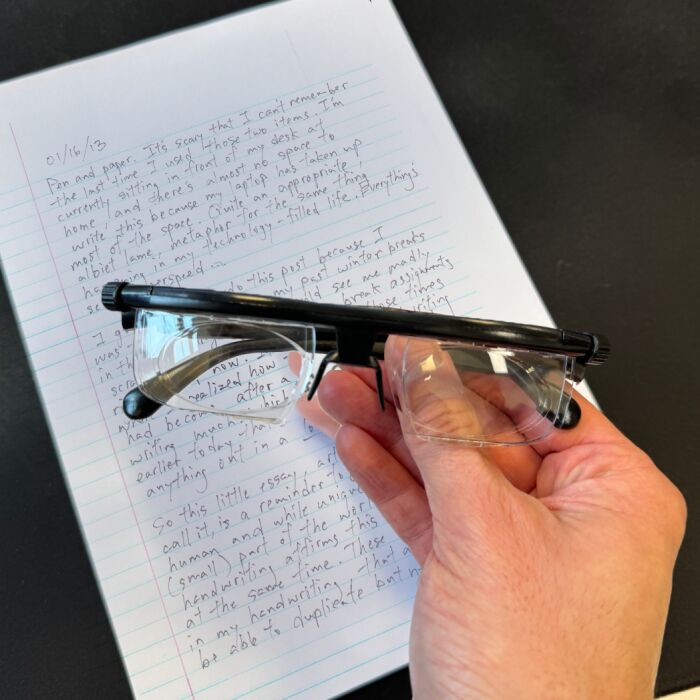 01/16/13
Pen and paper. It's scary that I can't remember
the last time I used those two items. I'm
currently sitting in front of my desk at
home, and there's almost no space to
write this because my laptop has taken up
most of the space. Quite an appropriate,
albiet lame, metaphor for the same thing
happening in my technology-filled life. Everything's
do this post because I
my past winter breaks
see me madly
break assignments
these times
writing
now.
realized how
had become after a
writing much
earlier today
anything out in a
So this little essay,
call it, is a reminder to
human and while
(small) part of the
handwriting affirms this
at the same time. These
in my handwriting that
be able to duplicate but